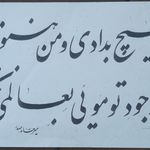 بهیچ بدادی و من هنوز
وجود تو مویی بعالمی